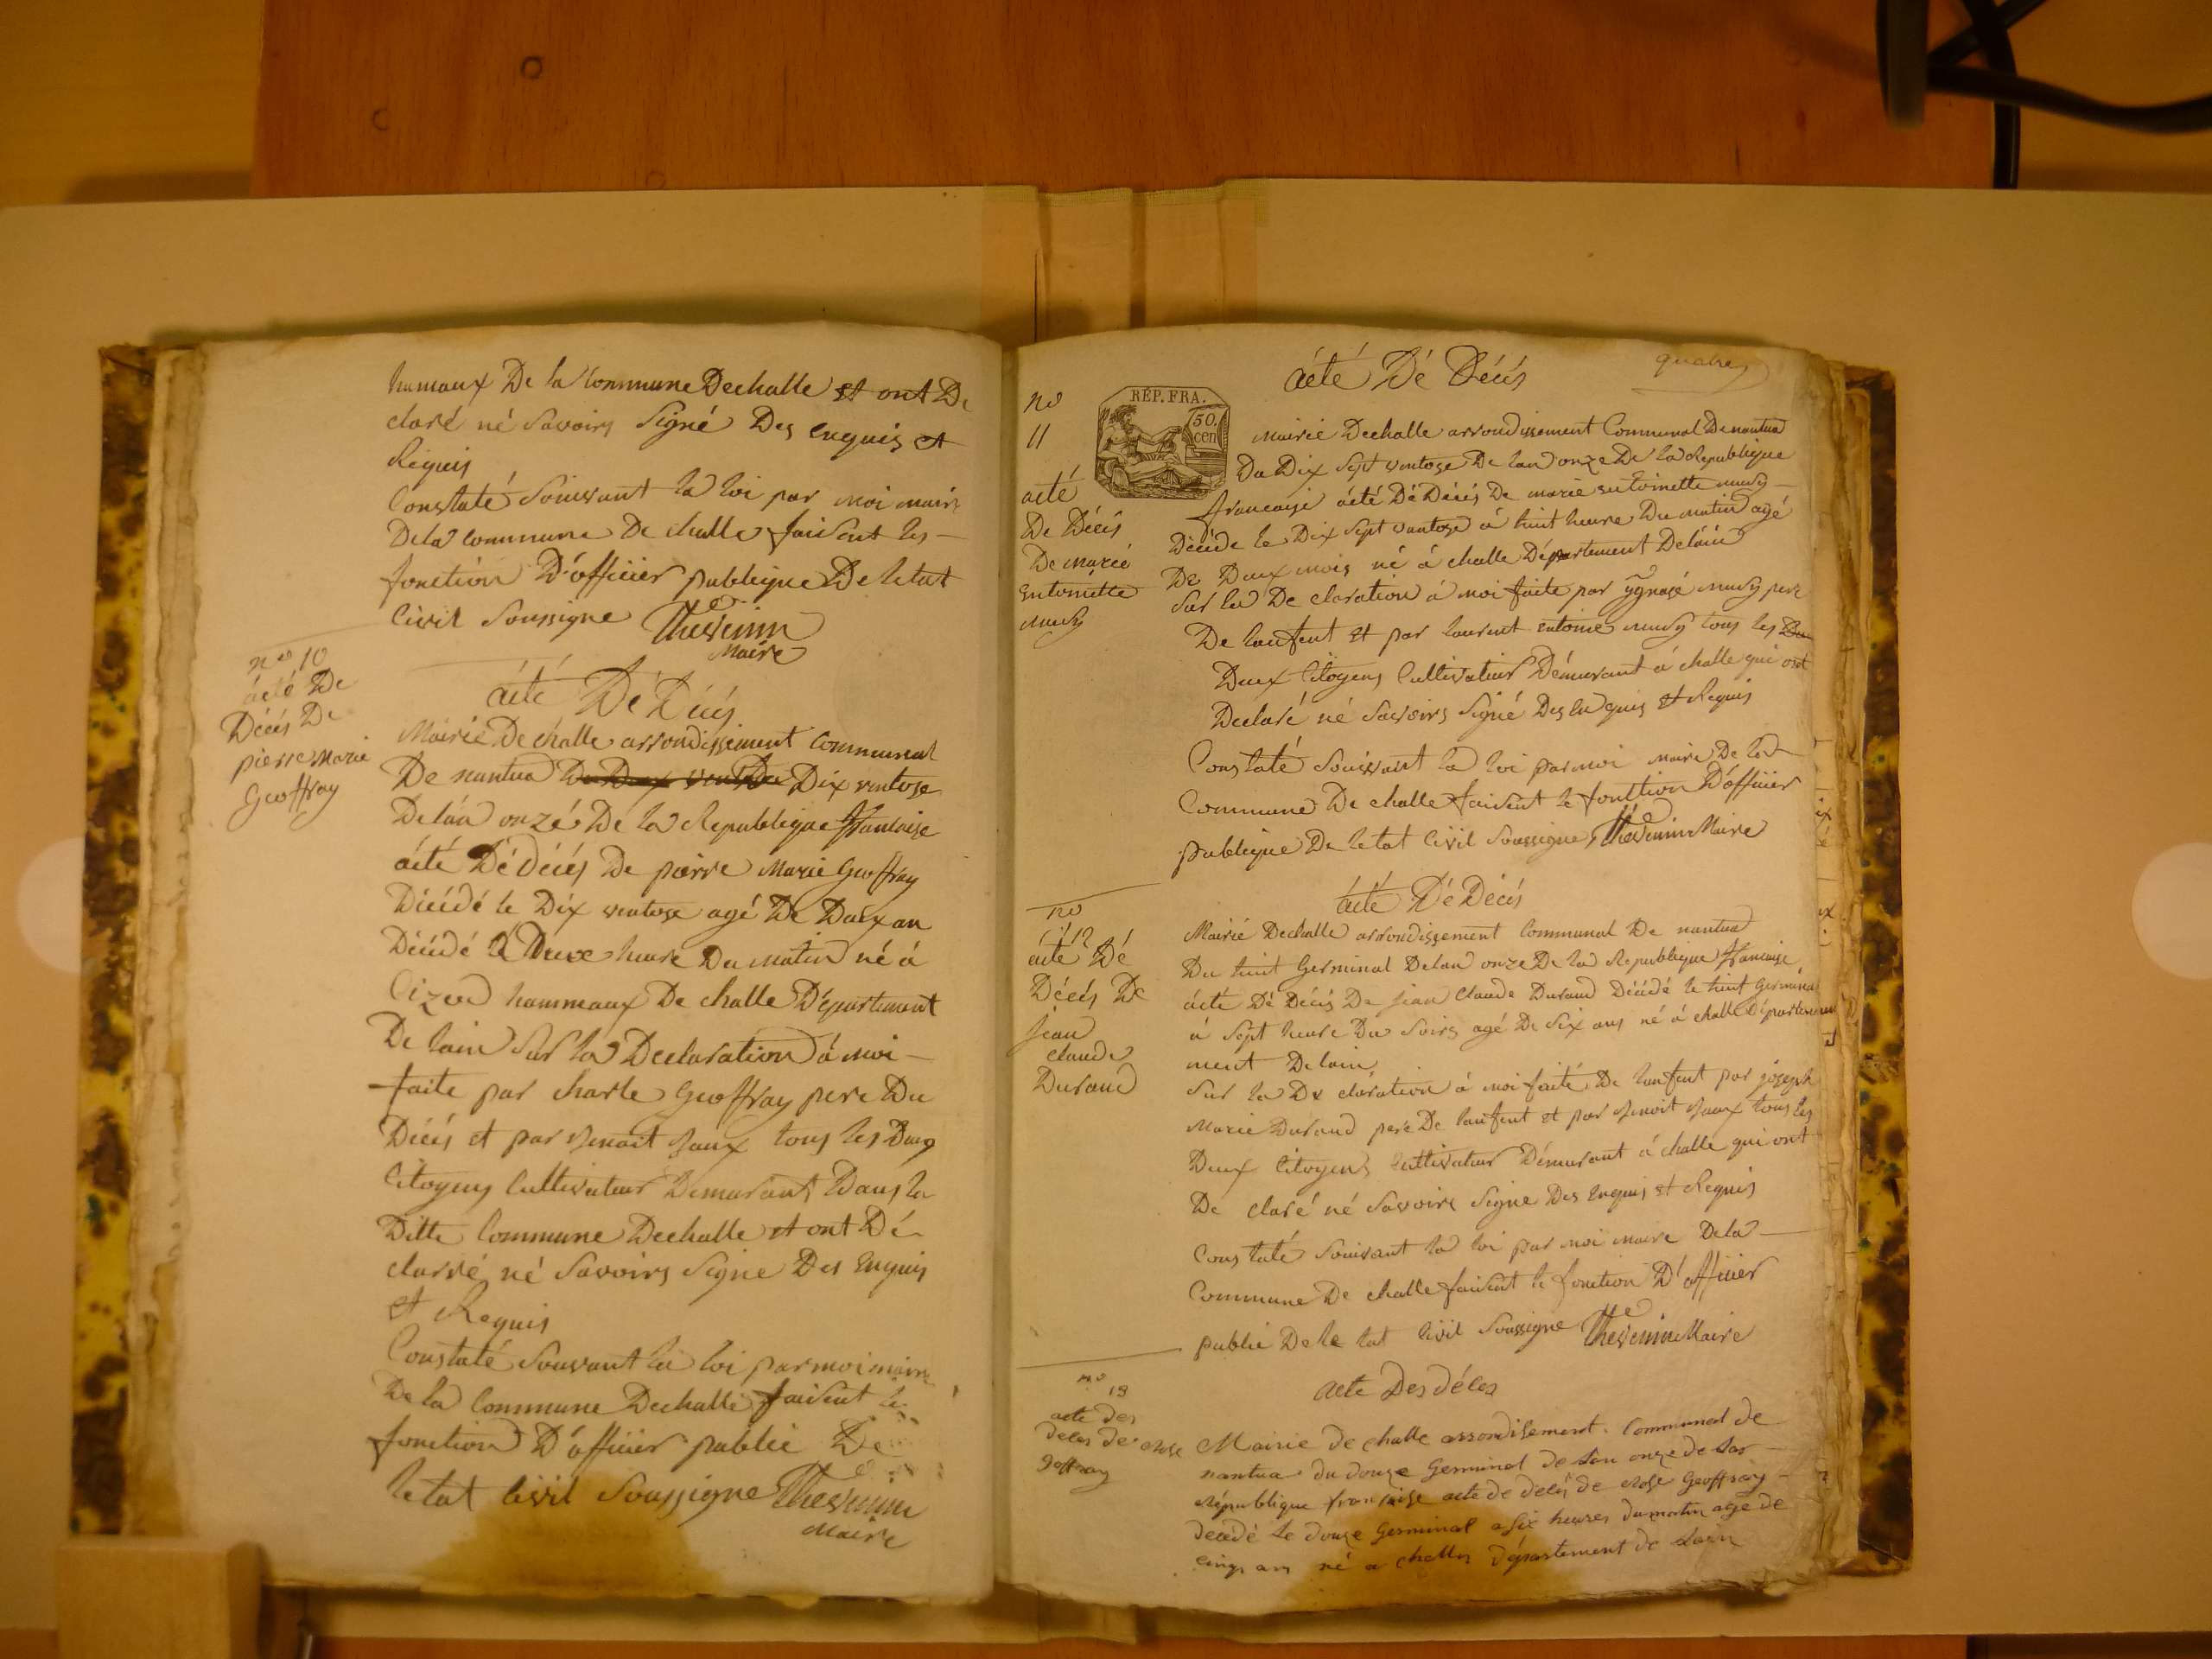 hamaux De la Commune Dechalle et ont De
claré né Savoirs Signé Des Enquis et
Requis
Constaté Souivant la loi par moi maire
Dela commune De challe faisent les
fonction D'officier publique De letat
Civil Soussigne Thevenin
Maire
no 10
acté De
Décés De
pierre Marie
Geoffray
acté Dé Décés
Mairie De challe arrondissement Communal
De nantua Dix ventose
De lan onzé De la Republique francaise
acté Dé Décés De pierre Marie Geoffray
Décédé le Dix ventose agé De Daux an
Décédé à heure Du Matin né à
Cizod hammaux De challe Département
De lain Sur la Declaration á moi
faite par charle Geoffray pere Du
Décés et par tous les Daux
Citoyens Cultivateur Demurant Dans la
Ditte Commune Dechalle et ont Dé
clarré né Savoirs Signe Des Enquis
et Requis
Constaté Souvant la loi par moi maire
De la Commune Dechalle faisent le
fonction D'officier public De
letat Civil Soussigne Thevenin
Maire
quatre
acté Dé Décés
no
11
RÉP. FRA.
50.
cen
acté
De Décés
De marie
entoinette
Mairie Dechalle arrondissement Communal De nantua
Du Dix Sept ventose De lan onze De la Republique
francaise acté Dé Décés De marie entoinette
Décéde le Dix Sept vantose á huit heure Du matin agé
De Daux mois né á challe Département Delain
Sur la De claration á moi faite par pere
De lenfent et par laurent entoine tous les
Daux Citoyens Cultivatieur Démurant á challe qui ont
Declaré né Savoirs Signé Des En quis et Requis
Constaté Souivant la loi par moi maire De la
Commune De challe faisent le fontion D'officier
publique De letat Civil Soussigne Thevenin Maire
no
12
acté Dé
Décés De
jean
claude
Durand
acté Dé Décés
Mairié Dechalle arrondissement Communal De nantua
Du huit Germinal Delan onze De la Republique francaise
acté Dé Décés De jean Claude Durand Décédé le huit Germinal
á Sept heure Du Soirs agé De Six ans né á challe Département
ment Delain
Sur la De claration á moi faité De lanfent par joseph
Marie Durand pere De lanfent et par tous les
Deux Citoyens Cultivateur Démurant á challe qui ont
De claré né Savoirs Signe Des Enquis et Requis
Constaté Souivant la loi par moi maire Dela
Commune De challe faisent le fonction D'officier
public De le tat Civil Soussigne Thevenin Maire
no
13
acte des
deces de Rose
Geoffray
Acte Des déces
Mairie de challe arrondisement Communal de
nantua du douze Germinal de lan onze de lar
république francaise acte de decés de Rose Geoffray
decedé le douze Germinal a six heures du matin agé de
cinqs ans né a challes département de lain